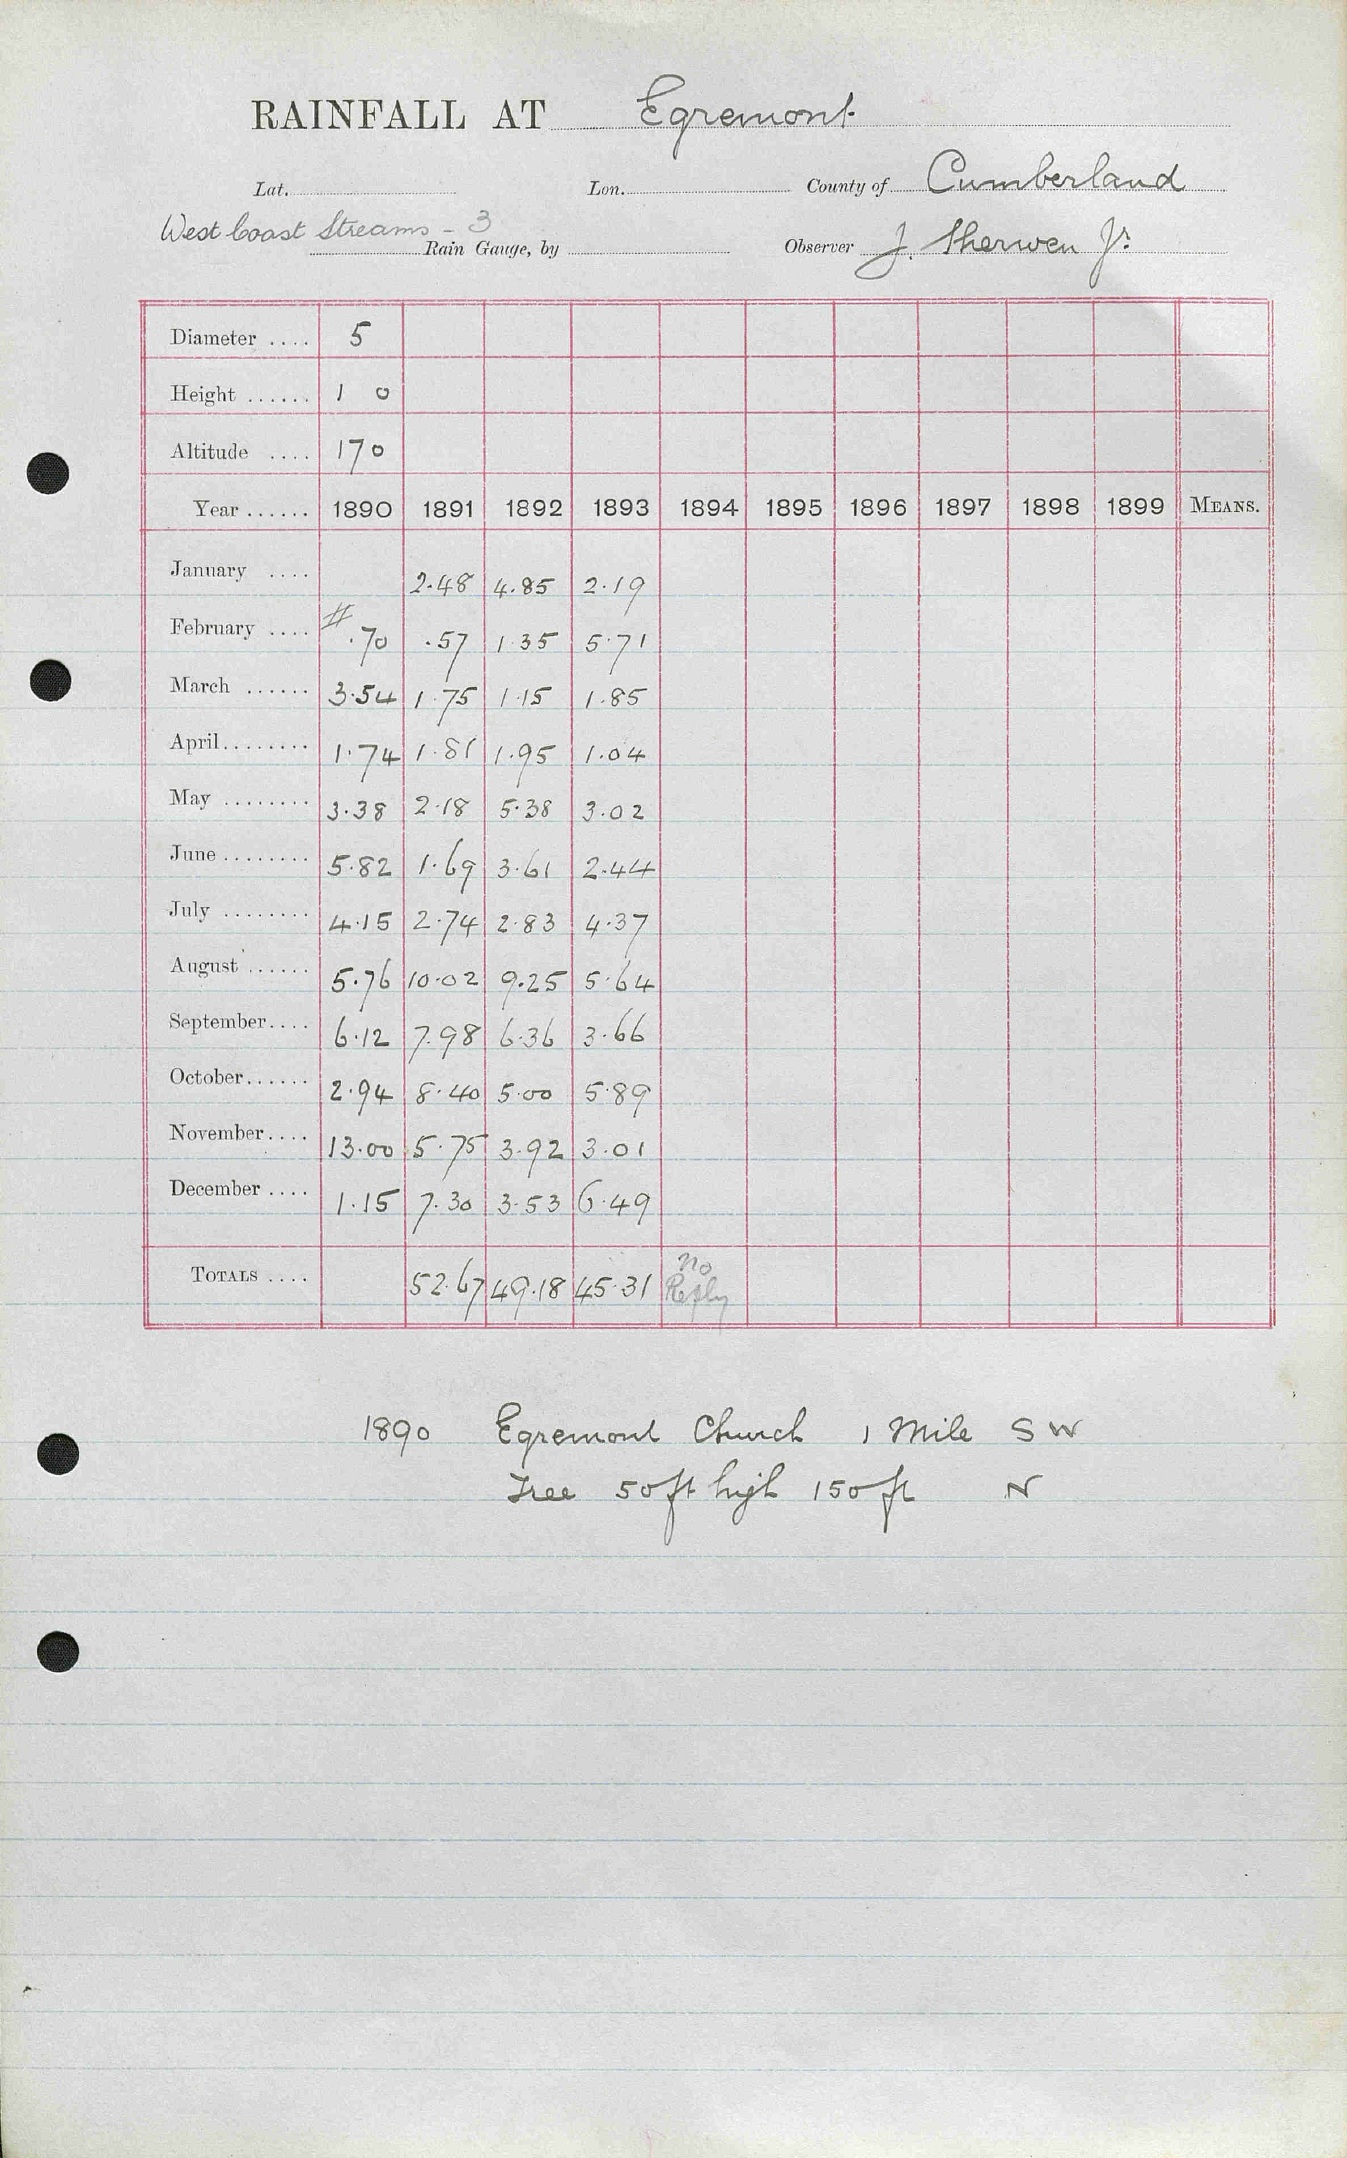 RAINFALL AT Egremont
Lat. Lon. County of Cumberland
West Coast Streams - 3
Rain Gauge, by Observer J. Sherwen Jr.
Diameter .... 5
Height ...... 1 0
Altitude .... 170
Year ...... 1890 1891 1892 1893 1894 1895 1896 1897 1898 1899 MEANS.
January .... 2.48 4.85 2.19
February .... # .70 .57 1.35 5.71
March ...... 3.54 1.75 1.15 1.85
April........ 1.74 1.81 1.95 1.04
May ........ 3.38 2.18 5.38 3.02
June ........ 5.82 1.69 3.61 2.44
July ........ 4.15 2.74 2.83 4.37
August ...... 5.76 10.02 9.25 5.64
September.... 6.12 7.98 6.36 3.66
October...... 2.94 8.40 5.00 5.89
November.... 13.00 5.75 3.92 3.01
December .... 1.15 7.30 3.53 6.49
TOTALS .... 52.67 49.18 45.31 No Reply
1890 Egremont Church 1 Mile SW
Tree 50ft high 150ft N